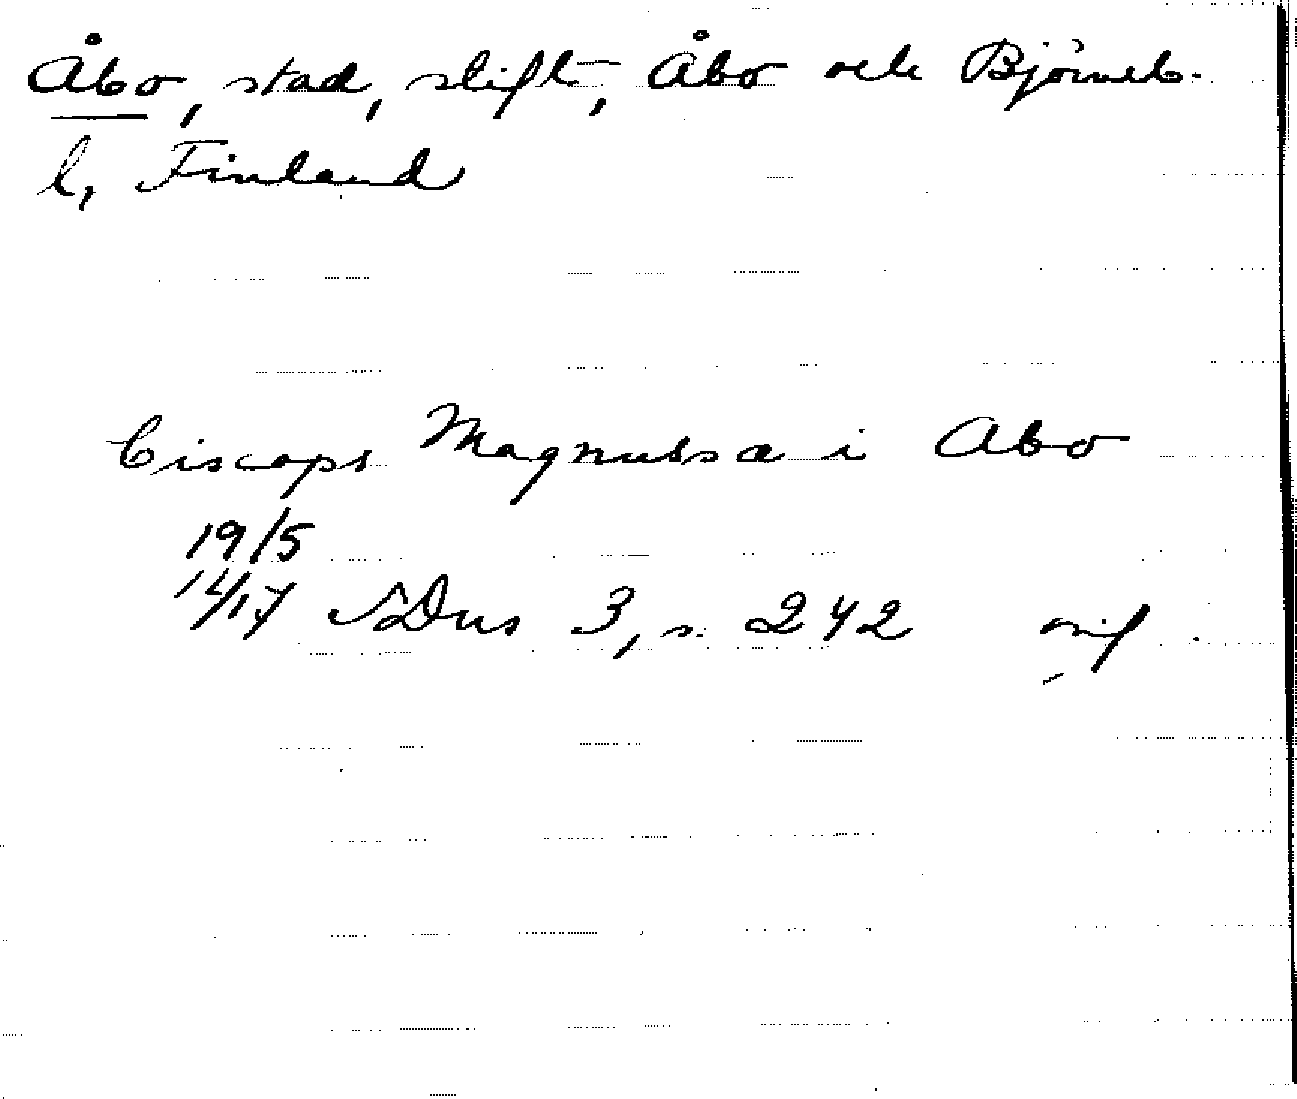 Åbo, stad, stift, Åbo och Björneb.
l, Finland
biscops Magnusa i Abo
19/5
14/17 SDns 3, s. 242 orig